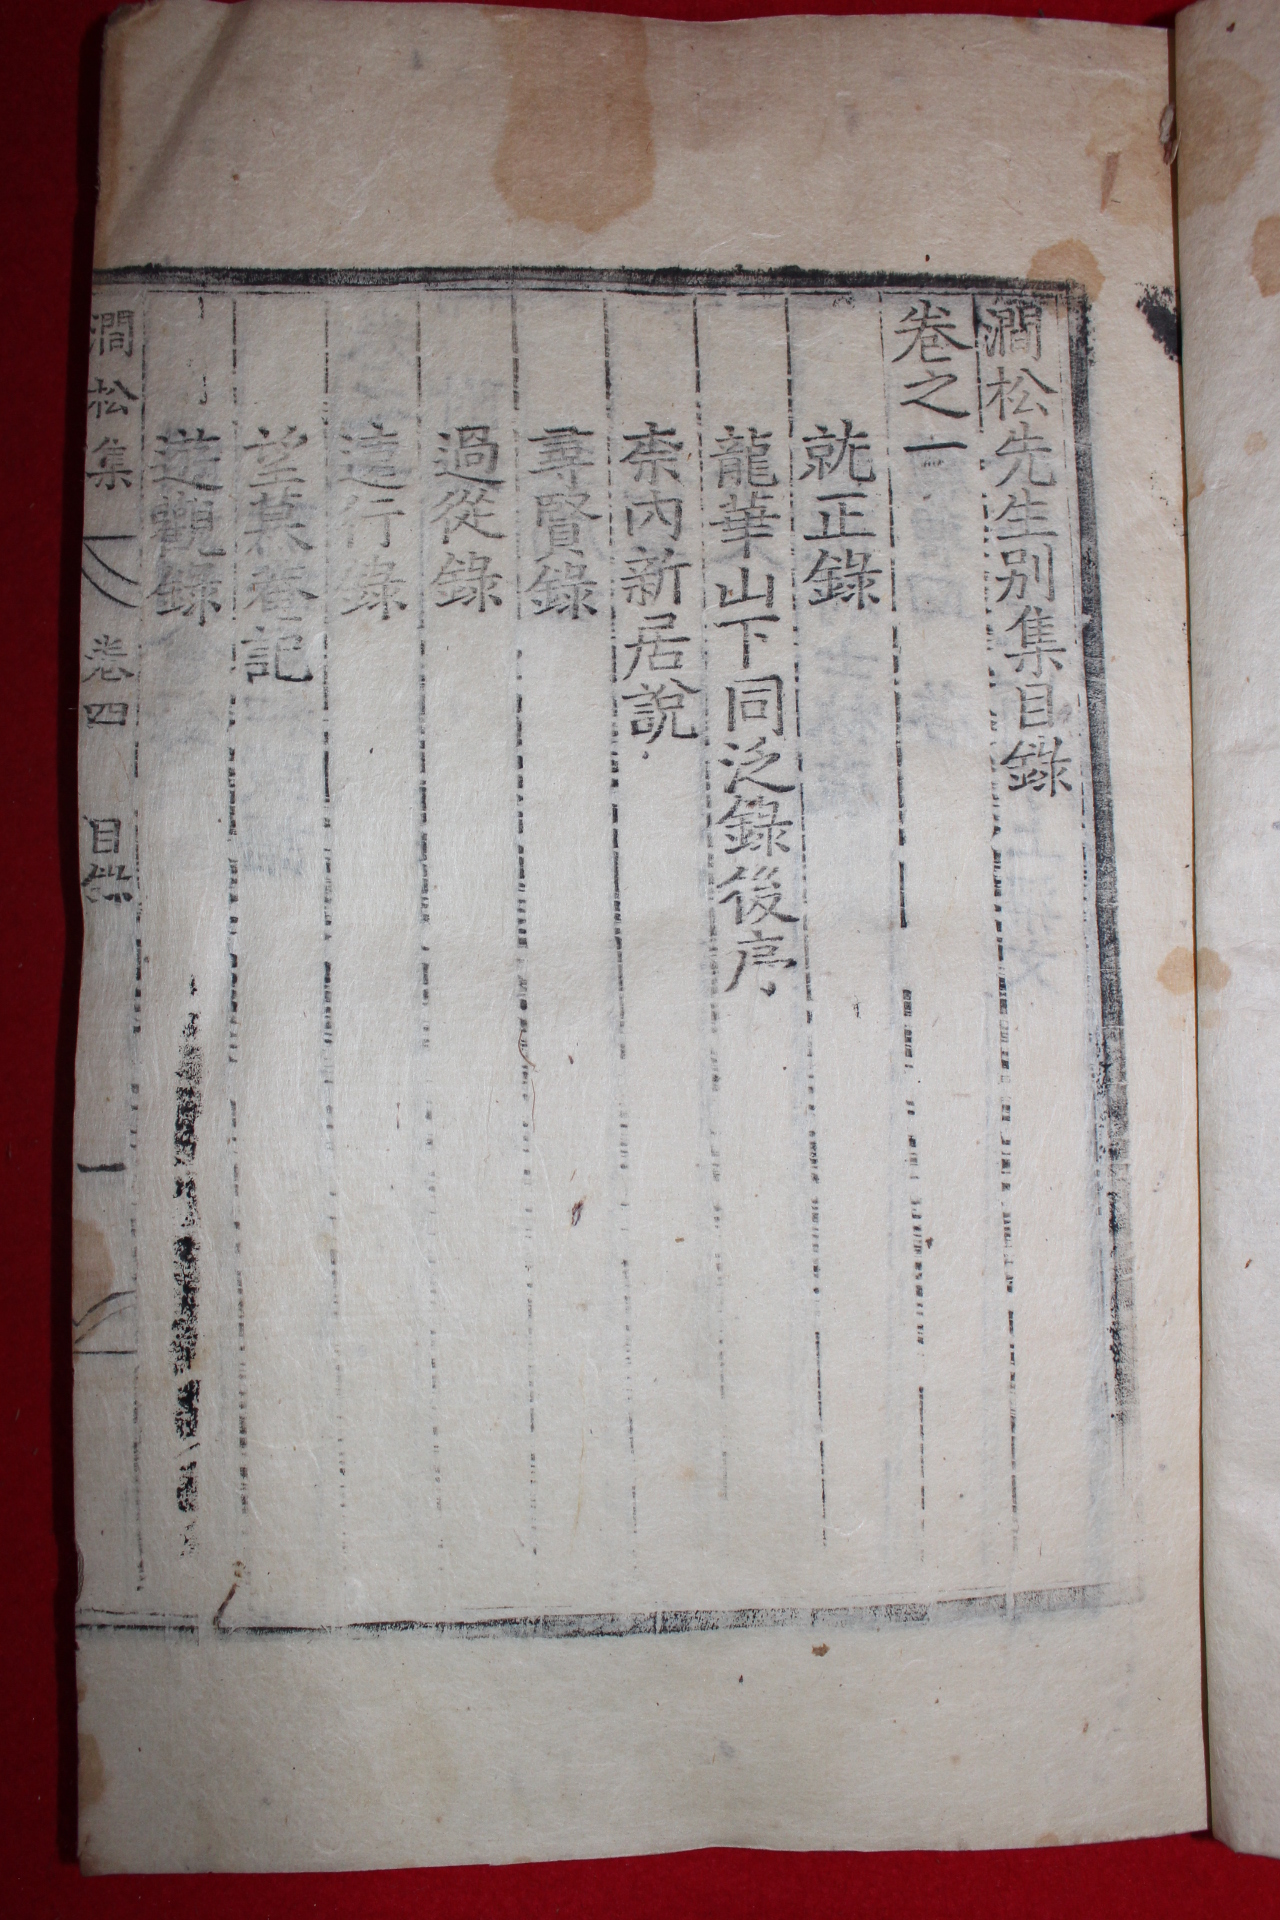 澗松先生別集目錄
卷之一
就正錄
龍華山下同泛錄後序
柰內新居說
尋賢錄
過從錄
遠行錄
望慕菴記
遊觀錄
澗松集
卷四
目錄
一